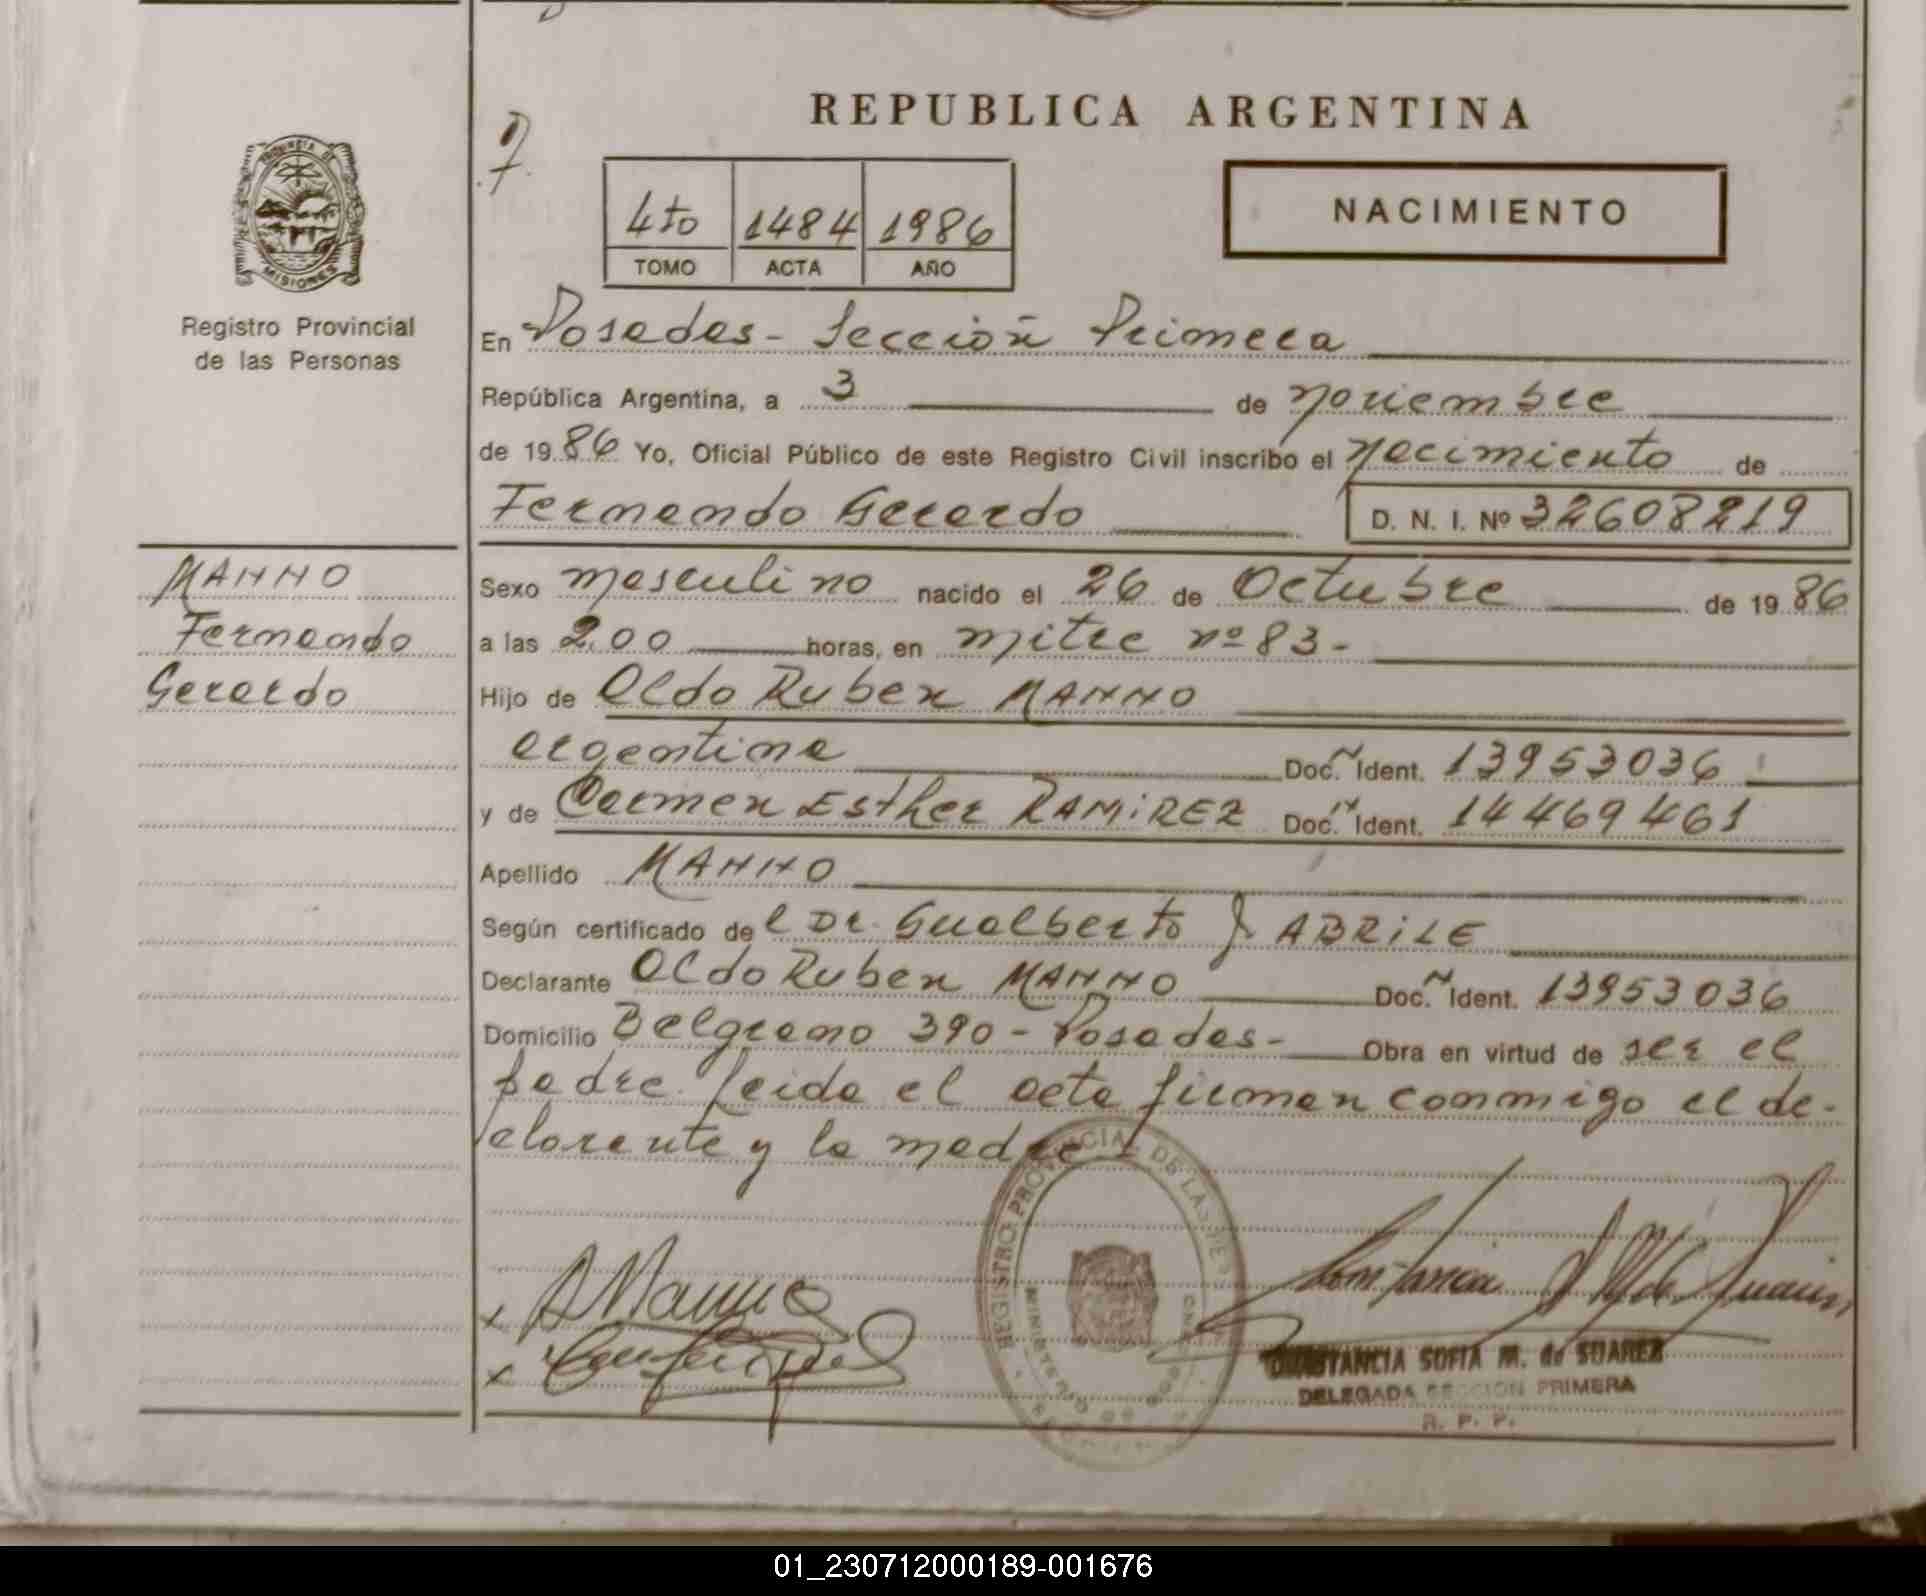 REPUBLICA ARGENTINA
4to 1484 1986
TOMO ACTA AÑO
NACIMIENTO
PROVINCIA DE
MISIONES
Registro Provincial
de las Personas
En Posadas - Sección Primera
República Argentina, a 3 de noviembre
de 1986 Yo, Oficial Público de este Registro Civil inscribo el nacimiento de
Fernando Gerardo D. N. I. Nº 32608219
MANNO
Fernando
Gerardo
Sexo masculino nacido el 26 de Octubre de 1986
a las 2,00 horas, en mitre nº 83-
Hijo de Aldo Ruben MANNO
argentina Doc. Ident. 13953036
y de Carmen Esther RAMiREZ Doc. Ident. 14469461
Apellido MANNO
Según certificado del Dr. Gualberto J ABRiLE
Declarante Aldo Ruben MANNO Doc. Ident. 13953036
Domicilio Belgrano 390 - Posadas - Obra en virtud de ser el
padre. Leida el acta firman conmigo el de-
clarante y la madre
x AManno
x
REGISTRO PROVINCIAL DE LAS PER
MINISTERIO DE GOB
CONSTANCIA SOFIA M. de SUAREZ
DELEGADA SECCION PRIMERA
R. P. P.
01_230712000189-001676